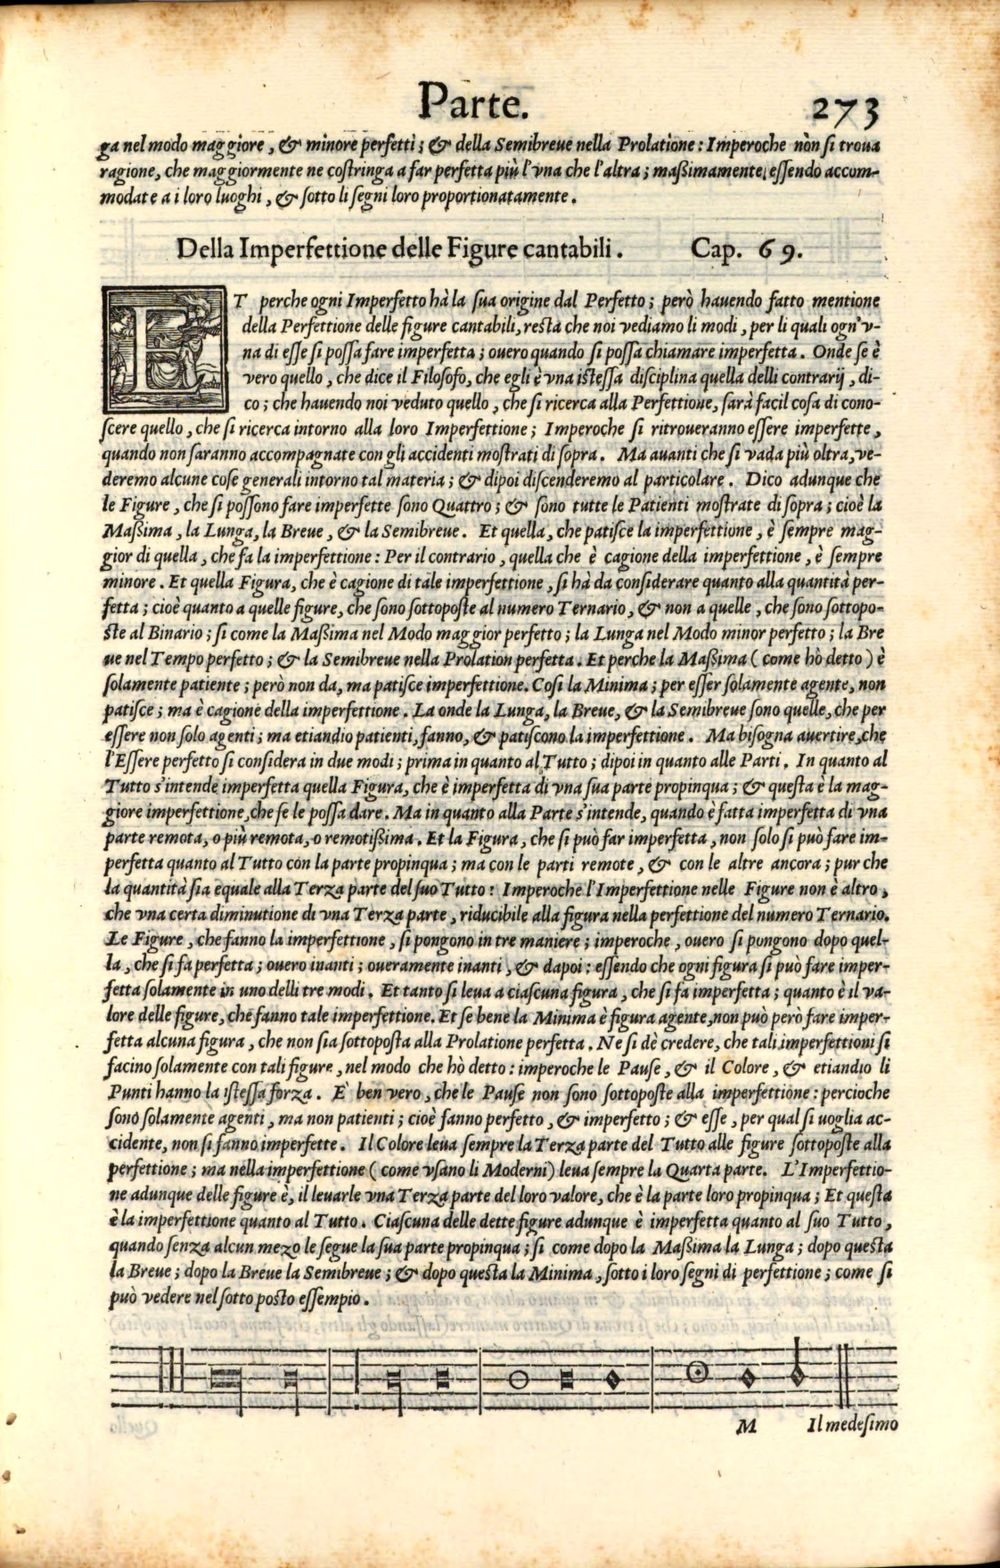 Parte. 273
ga nel modo maggiore, & minore perfetti; & della Semibreue nella Prolatione: Imperoche non si troua
ragione, che maggiormente ne costringa a far perfetta più l'vna che l'altra; maßimamente essendo accom-
modate a i loro luoghi, & sotto li segni loro proportionatamente.
Della Imperfettione delle Figure cantabili. Cap. 69.
ET perche ogni Imperfetto hà la sua origine dal Perfetto; però hauendo fatto mentione
della Perfettione delle figure cantabili, resta che noi vediamo li modi, per li quali ogn'v-
na di esse si possa fare imperfetta; ouero quando si possa chiamare imperfetta. Onde se è
vero quello, che dice il Filosofo, che egli è vna istessa disciplina quella delli contrarij, di-
co; che hauendo noi veduto quello, che si ricerca alla Perfettione, sarà facil cosa di cono-
scere quello, che si ricerca intorno alla loro Imperfettione; Imperoche si ritroueranno essere imperfette,
quando non saranno accompagnate con gli accidenti mostrati di sopra. Ma auanti che si vada più oltra, ve-
deremo alcune cose generali intorno tal materia; & dipoi discenderemo al particolare. Dico adunque che
le Figure, che si possono fare imperfette sono Quattro; & sono tutte le Patienti mostrate di sopra; cioè la
Maßima, la Lunga, la Breue, & la Semibreue. Et quella, che patisce la imperfettione, è sempre mag-
gior di quella, che fa la imperfettione: Per il contrario, quella che è cagione della imperfettione, è sempre
minore. Et quella Figura, che è cagione di tale imperfettione, si hà da considerare quanto alla quantità per-
fetta; cioè quanto a quelle figure, che sono sottoposte al numero Ternario, & non a quelle, che sono sottopo-
ste al Binario; si come la Maßima nel Modo maggior perfetto; la Lunga nel Modo minor perfetto; la Bre
ue nel Tempo perfetto; & la Semibreue nella Prolation perfetta. Et perche la Maßima (come hò detto) è
solamente patiente; però non da, ma patisce imperfettione. Cosi la Minima; per esser solamente agente, non
patisce; ma è cagione della imperfettione. La onde la Lunga, la Breue, & la Semibreue sono quelle, che per
essere non solo agenti; ma etiandio patienti, fanno, & patiscono la imperfettione. Ma bisogna auertire, che
l'Essere perfetto si considera in due modi; prima in quanto al Tutto; dipoi in quanto alle Parti. In quanto al
Tutto s'intende imperfetta quella Figura, che è imperfetta di vna sua parte propinqua; & questa è la mag-
giore imperfettione, che se le possa dare. Ma in quanto alla Parte s'intende, quando è fatta imperfetta di vna
parte remota, o più remota, o remotißima. Et la Figura, che si può far imperfetta, non solo si può fare im-
perfetta quanto al Tutto con la parte propinqua; ma con le parti remote, & con le altre ancora; pur che
la quantità sia equale alla Terza parte del suo Tutto: Imperoche l'Imperfettione nelle Figure non è altro,
che vna certa diminutione di vna Terza parte, riducibile alla figura nella perfettione del numero Ternario.
Le Figure, che fanno la imperfettione, si pongono in tre maniere; imperoche, ouero si pongono dopo quel-
la, che si fa perfetta; ouero inanti; oueramente inanti, & dapoi: essendo che ogni figura si può fare imper-
fetta solamente in uno delli tre modi. Et tanto si leua a ciascuna figura, che si fa imperfetta; quanto è il va-
lore delle figure, che fanno tale imperfettione. Et se bene la Minima è figura agente, non può però fare imper-
fetta alcuna figura, che non sia sottoposta alla Prolatione perfetta. Ne si dè credere, che tali imperfettioni si
facino solamente con tali figure, nel modo che hò detto: imperoche le Pause, & il Colore, & etiandio li
Punti hanno la istessa forza. È ben vero, che le Pause non sono sottoposte alla imperfettione: percioche
sono solamente agenti, ma non patienti; cioè fanno perfetto, & imperfetto; & esse, per qual si uoglia ac-
cidente, non si fanno imperfette. Il Colore leua sempre la Terza parte del Tutto alle figure sottoposte alla
perfettione; ma nella imperfettione (come vsano li Moderni) leua sempre la Quarta parte. L'Imperfettio-
ne adunque delle figure è, il leuarle vna Terza parte del loro valore, che è la parte loro propinqua; Et questa
è la imperfettione quanto al Tutto. Ciascuna delle dette figure adunque è imperfetta quanto al suo Tutto,
quando senza alcun mezo le segue la sua parte propinqua; si come dopo la Maßima la Lunga; dopo questa
la Breue; dopo la Breue la Semibreue; & dopo questa la Minima, sotto i loro segni di perfettione; come si
può vedere nel sotto posto essempio.
M Il medesimo